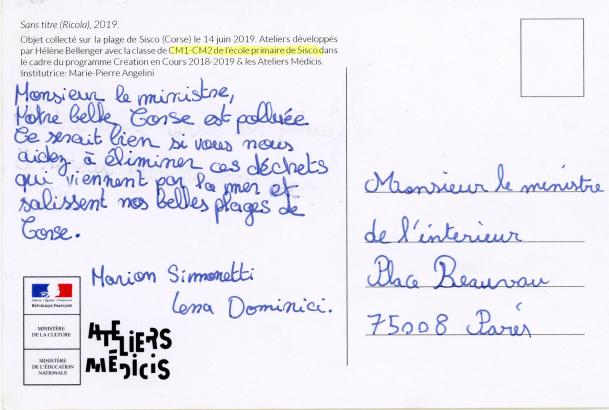 Sans titre (Ricola), 2019.
Objet collecté sur la plage de Sisco (Corse) le 14 juin 2019. Ateliers développés
par Hélène Bellenger avec la classe de CM1-CM2 de l'école primaire de Sisco dans
le cadre du programme Création en Cours 2018-2019 & les Ateliers Médicis.
Institutrice: Marie-Pierre Angelini
Monsieur le ministre,
Notre belle Corse est polluée
Ce serait bien si vous nous
aidez à éliminer ces déchets
qui viennent par la mer et
salissent nos belles plages de
Corse.
Marion Simonetti
Lena Dominici.
Monsieur le ministre
de l'interieur
Place Beauvau
75008 Paris
Liberté • Égalité • Fraternité
RÉPUBLIQUE FRANÇAISE
MINISTÈRE
DE LA CULTURE
MINISTÈRE
DE L'ÉDUCATION
NATIONALE
ATELIERS
MÉDICIS